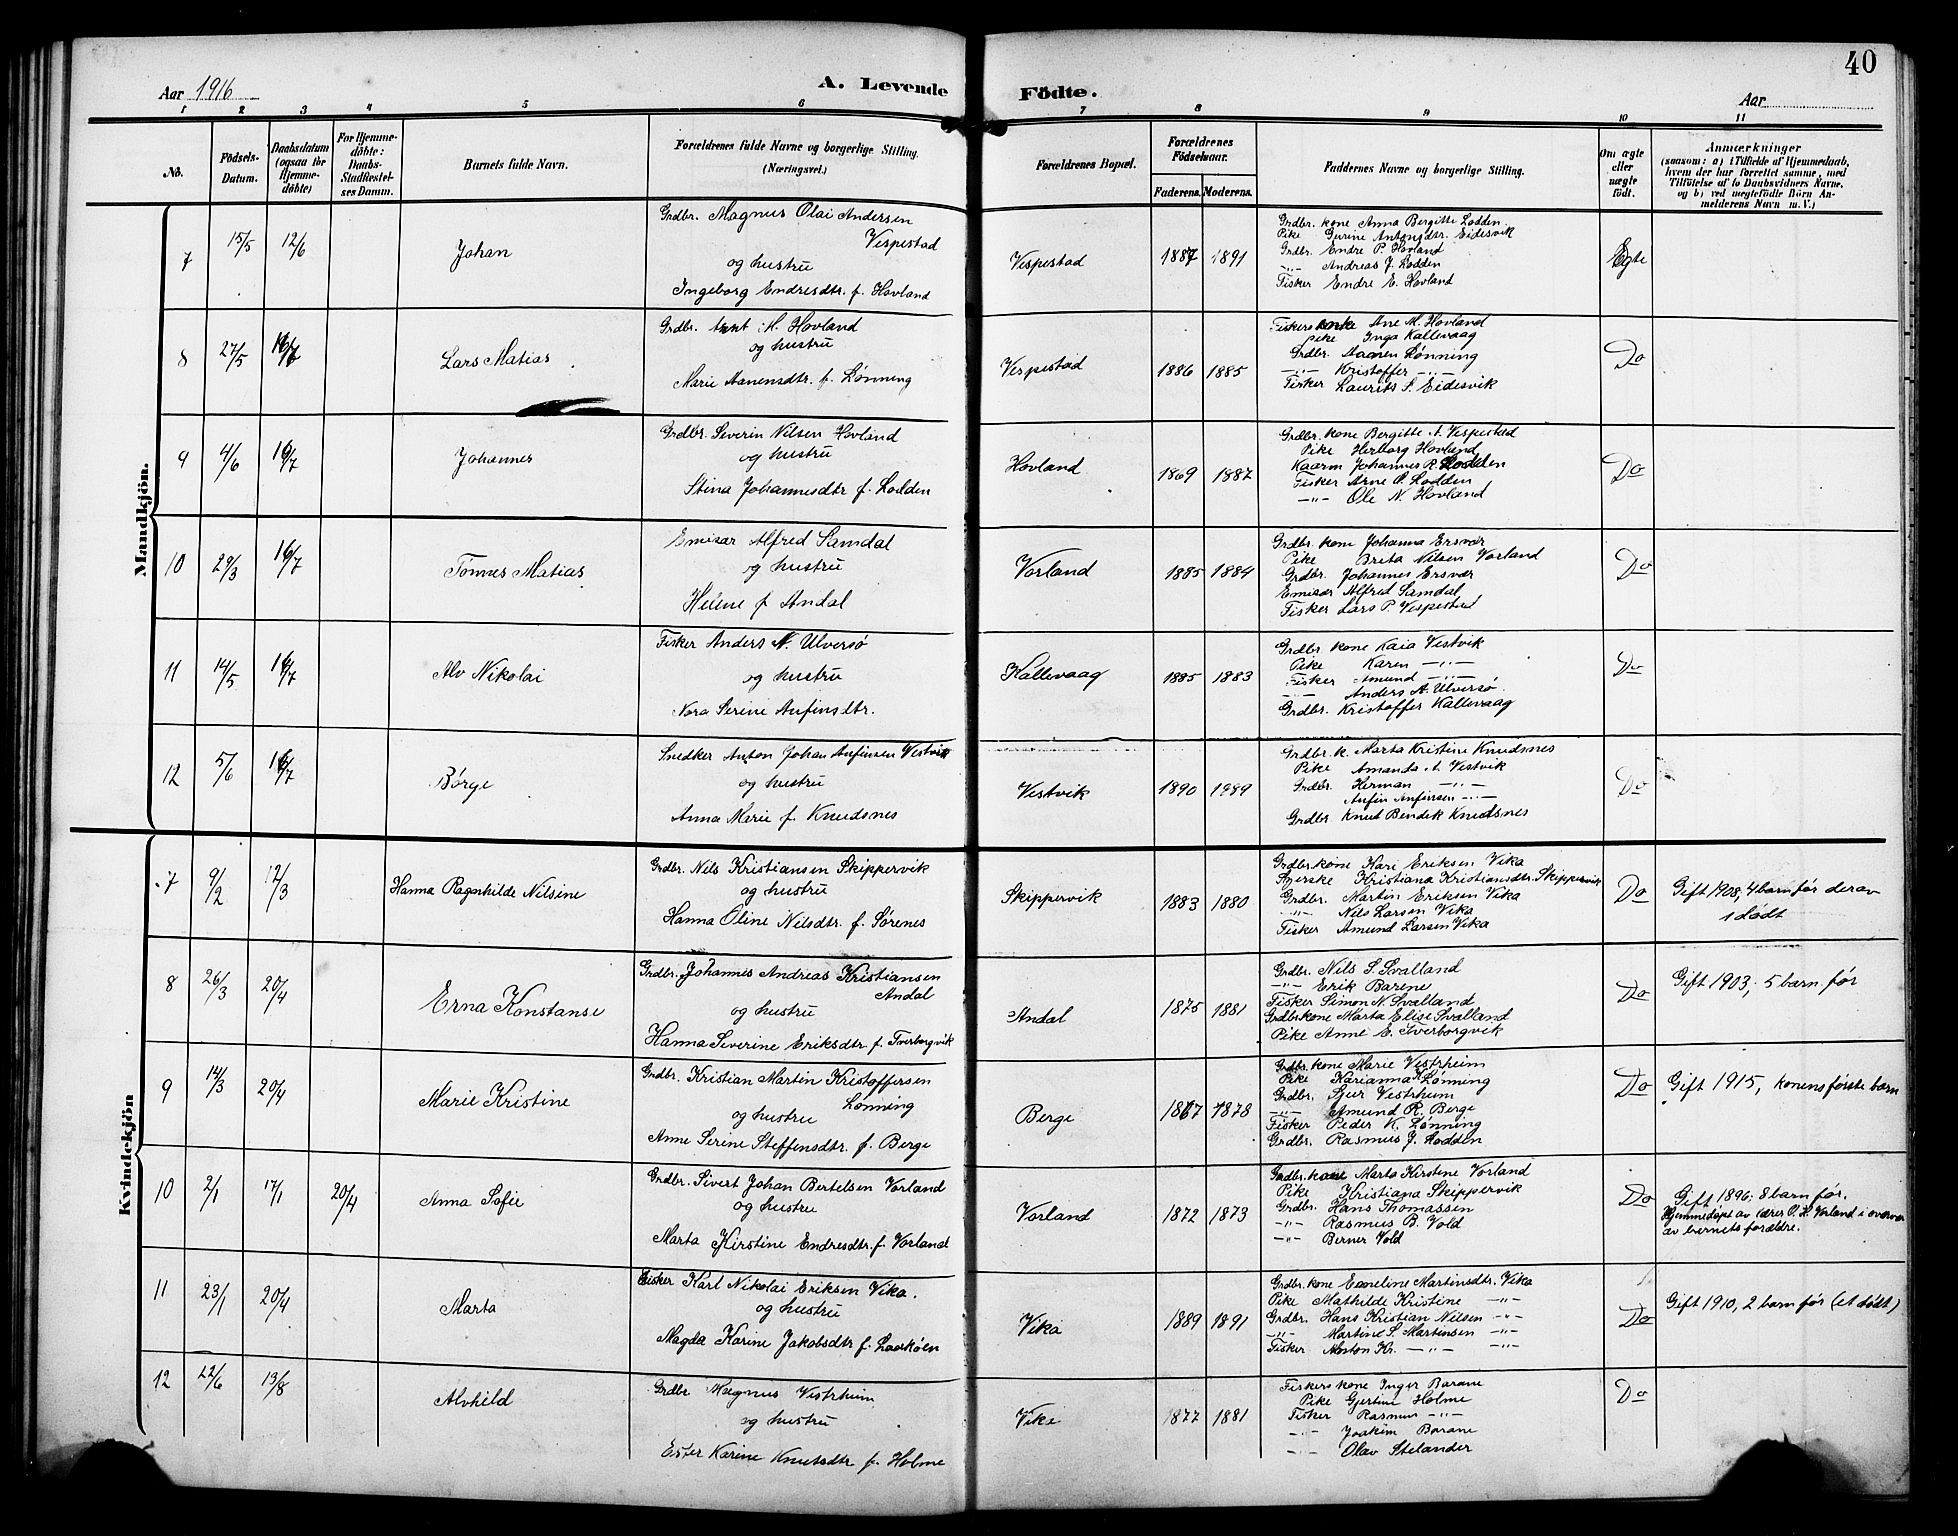 40
Aar 1916
A. Levende Födte.
Aar
1 2 3 4 5 6 7 8 9 10 11
No.
Födsels-Datum.
Daabsdatum (ogsaa for Hjemme-döbte)
For Hjemme-döbte: Daabs-Stadfæstel-ses Datum.
Barnets fulde Navn.
Forældrenes fulde Navne og borgerlige Stilling. (Næringsvei.)
Forældrenes Bopæl.
Forældrenes Födselsaar.
Faderens. Moderens.
Faddernes Navne og borgerlige Stilling.
Om ægte eller uægte födt.
Anmærkninger
(saasom: a) i Tilfælde af Hjemmedaab,
hvem der har forrettet samme, med
Tilföielse af to Daabsvidners Navne,
og b) ved uægtefödte Börn An-
melderens Navn m. V.)
Mandkjön.
7 15/5 12/6 Johan
Grdbr. Magnus Olai Andersen
Vespestad
og hustru
Ingeborg Endresdtr. f. Hovland
Vespestad 1887 1891
Grdbr. kone Anna Bergitte Lodden
Pike Gurine Antonsdtr. Eidesvik
Grdbr. Endre P. Hovland
-"- Andreas J. Lodden
Fisker Endre E. Hovland
Egte
8 27/5 16/7 Lars Matias
Grdbr. M. Hovland
og hustru
Marie Aanensdtr. f. Lønning
Vespestad 1886 1885
Fiskers kone Ane M. Hovland
Pike Inga Kallevaag
Grdbr. Aanen Lønning
-"- Kristoffer -"-
Fisker Laurits S. Eidesvik
Do
9 4/6 16/7 Johannes
Grdbr. Severin Nilsen Hovland
og hustru
Stina Johannesdtr f. Lodden
Hovland 1869 1887
Grdbr. kone Bergitte A. Vespestad
Pike Herborg Hovland
Kaarm Johannes R. Lodden
Fisker Arne P. Lodden
-"- Ole N. Hovland
Do
10 29/3 16/7 Tønnes Matias
Emisær Alfred Samdal
og hustru
Helene f. Andal
Vorland 1885 1884
Grdbr. kone Johanna Ersvær
Pike Brita Nilsen Vorland
Grdbr. Johannes Ersvær
Emisær Alfred Samdal
Fisker Lars P. Vespestad
Do
11 14/5 16/7 Alv Nikolai
Fisker Anders N. Ulversø
og hustru
Nora Serine Anfinsdtr.
Kallevaag 1885 1883
Grdbr. kone Kaia Vestvik
Pike Karen -"-
Fisker Amund -"-
-"- Anders A. Ulversø.
Grdbr. Kristoffer Kallevaag
Do
12 5/6 16/7 Børge
Snedker Anton Johan Anfinsen Vestvik
og hustru
Anna Marie f. Knudsnes
Vestvik 1890 1889
Grdbr. k. Marta Kristine Knudsnes
Pike Amanda A. Vestvik
Grdbr. Herman -"-
Anfin Anfinsen -"-
Grdbr Knut Bendik Knudsnes
Do
Kvindekjön
7 9/2 12/3 Hanna Ragnhilde Nilsine
Grdbr. Nils Kristiansen Skippervik
og hustru
Hanna Oline Nilsdtr. f. Sørenes
Skippervik 1883 1880
Grdbr. kone Kari Eriksen Vika
Syerske Kristiana Kristiansdtr. Skippervik
Grdbr. Martin Eriksen Vika
-"- Nils Larsen Vika
Fisker Amund Larsen Vika
Do
Gift 1908, 4 barn før derav
1 dødt
8 26/3 20/4 Erna Konstanse
Grdbr. Johannes Andreas Kristiansen
Andal
og hustru
Hanna Severine Eriksdtr. f. Tverborgvik
Andal 1875 1881
Grdbr. Nils S. Svalland
-"- Erik Barene
Fisker Simon N. Svalland
Grdbr kone Marta Elise Svalland
Pike Anne E. Tverborgvik
Do
Gift 1903, 5 barn før
9 14/3 20/4 Marie Kristine
Grdbr. Kristian Martin Kristoffersen
Lønning
og hustru
Anne Serine Steffensdtr. f. Berge
Berge 1867 1878
Grdbr. kone Marie Vestrheim
Pike Karianna K Lønning
Grdbr. Sjur Vestrheim
-"- Amund R. Berge
Fisker Peder K. Lønning
Grdbr. Rasmus J. Lodden
Do
Gift 1915, konens første barn
10 2/1 17/1 20/4 Anna Sofie
Grdbr. Sivert Johan Bertelsen Vorland
og hustru
Marta Kirstine Endresdtr. f. Vorland
Vorland 1872 1873
Grdbr. kone Marta Kirstine Vorland
Pike Kristiana Skippervik
Grdbr. Hans Thomassen
-"- Rasmus B. Vold
-"- Berner Vold
Do
Gift 1896; 8 barn før.
Hjemmedøpt av lærer O. H. Vorland i overvær
av barnets forældre.
11 23/1 20/4 Marta
Fisker Karl Nikolai Eriksen Vika.
og hustru
Magda Karine Jakobsdtr f. Laaskøen
Vika 1889 1891
Grdbr. kone Emeline Martinsdtr. Vika
Pike Mathilde Kristine -"-
Grdbr. Hans Kristian Nilsen -"-
-"- Martine S. Martinsen -"-
Fisker Morton Kr. -"- -"-
Do
Gift 1910, 2 barn før (et dødt)
12 22/6 13/8 Alvhild
Grdbr Magnus Vestrheim
og hustru
Ester Karine Knutsdtr f. Holme
Vike 1877 1881
Fiskers kone Inger Barane
Pike Gjertine Holme
Fisker Rasmus -"-
-"- Joakim Barane
-"- Olav Stelander
Do